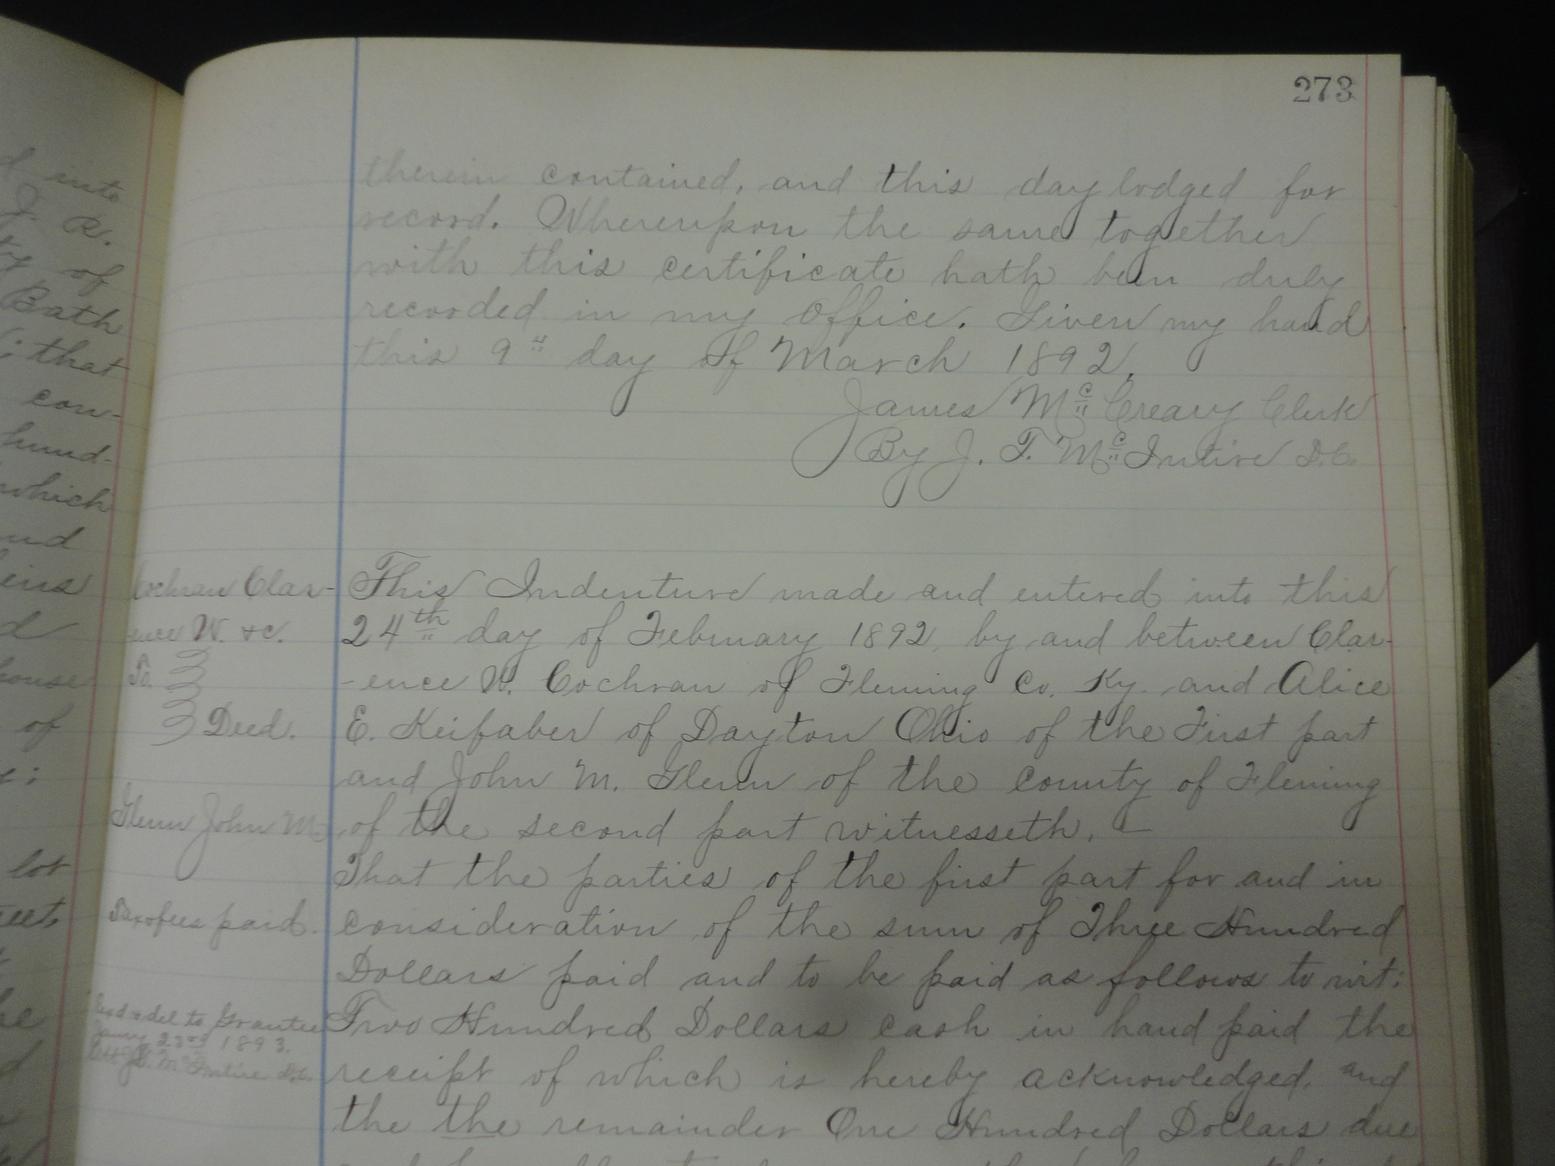 273
therein contained, and this day lodged for
record. Whereupon the same together
with this certificate hath been duly
recorded in my Office. Given my hand
this 9" day of March 1892.
James Mc Creary Clerk
By J. T. McIntire D.C.
This Indenture made and entered into this
24th day of February 1892, by and between Clar-
-ence W. Cochran of Fleming Co. Ky. and Alice
E. Keifaber of Dayton Ohio of the First part
and John M. Glenn of the county of Fleming
of the second part witnesseth. —
That the parties of the first part for and in
consideration of the sum of Three Hundred
Dollars paid and to be paid as follows to wit:
Two Hundred Dollars cash in hand paid the
receipt of which is hereby acknowledged, and
the the remainder One Hundred Dollars due
Cochran Clar-
ence W. &c.
To
Deed.
Glenn John M.
Tax & fees paid.
& del to Grantee
23rd 1893.
J. T. McIntire D.C.
into
J. R.
of
Bath
; that
con-
hund-
which
and
of
lot